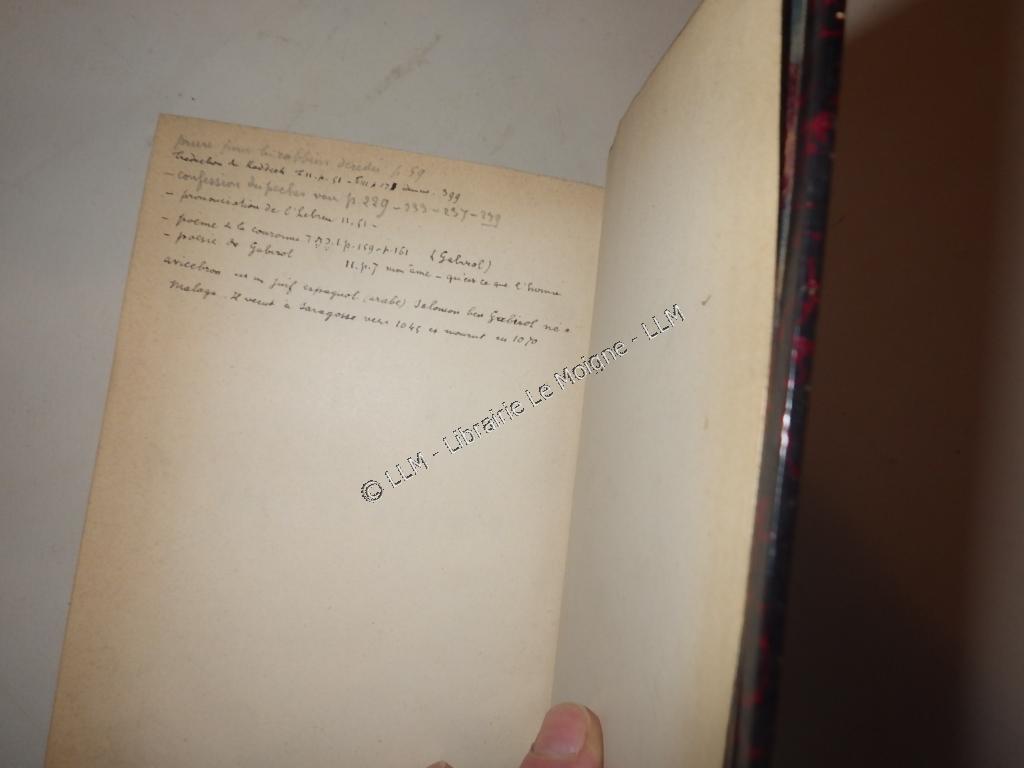 prière pour les rabbins décédés p 59
traduction du Kaddisch T II. p. 51 - 399
- confession du pecher voir p. 229 - 233 - 237 - 239
- prononciation de l'hebreu II. 51 -
- poème à la couronne p. 159 - p. 161 (Gabirol)
- poésie de Gabirol II. p. 7 mon âme - qu'est ce que l'homme
avicebron est un juif espagnol (arabe) Salomon ben Gebirol né à
Malaga. Il vecut à Saragosse vers 1045 et mourut en 1070
© LLM - Librairie Le Moigne - LLM